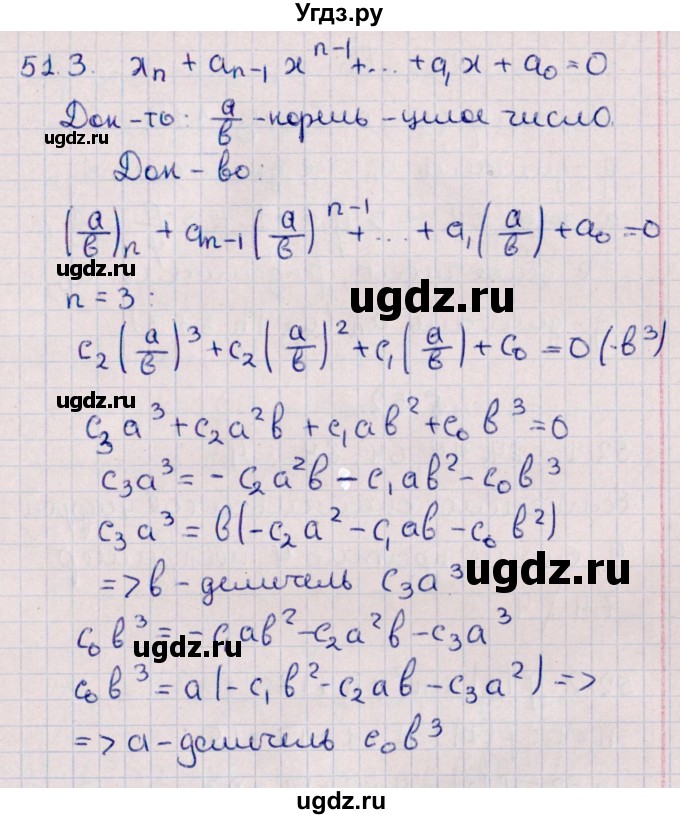 Угдз.ру
51.3. xₙ + aₙ₋₁ xⁿ⁻¹ + ... + a₁ x + a₀ = 0
ugdz.ru
Док-ть: a/в - корень - целое число.
ugdz.ru
Док-во:
(a/в)ₙ + aₙ₋₁ (a/в)ⁿ⁻¹ + ... + a₁ (a/в) + a₀ = 0
ugdz.ru
n = 3:
ugdz.ru
c₂ (a/в)³ + c₂ (a/в)² + c₁ (a/в) + c₀ = 0 (·в³)
ugdz.ru
c₃ a³ + c₂ a² в + c₁ a в² + c₀ в³ = 0
c₃ a³ = - c₂ a² в - c₁ a в² - c₀ в³
c₃ a³ = в (-c₂ a² - c₁ a в - c₀ в²)
=> в - делитель c₃ a³
ugdz.ru
c₀ в³ = - c₁ a в² - c₂ a² в - c₃ a³
ugdz.ru
c₀ в³ = a (-c₁ в² - c₂ a в - c₃ a²) =>
=> a - делитель c₀ в³
ugdz.ru
ugdz.ru